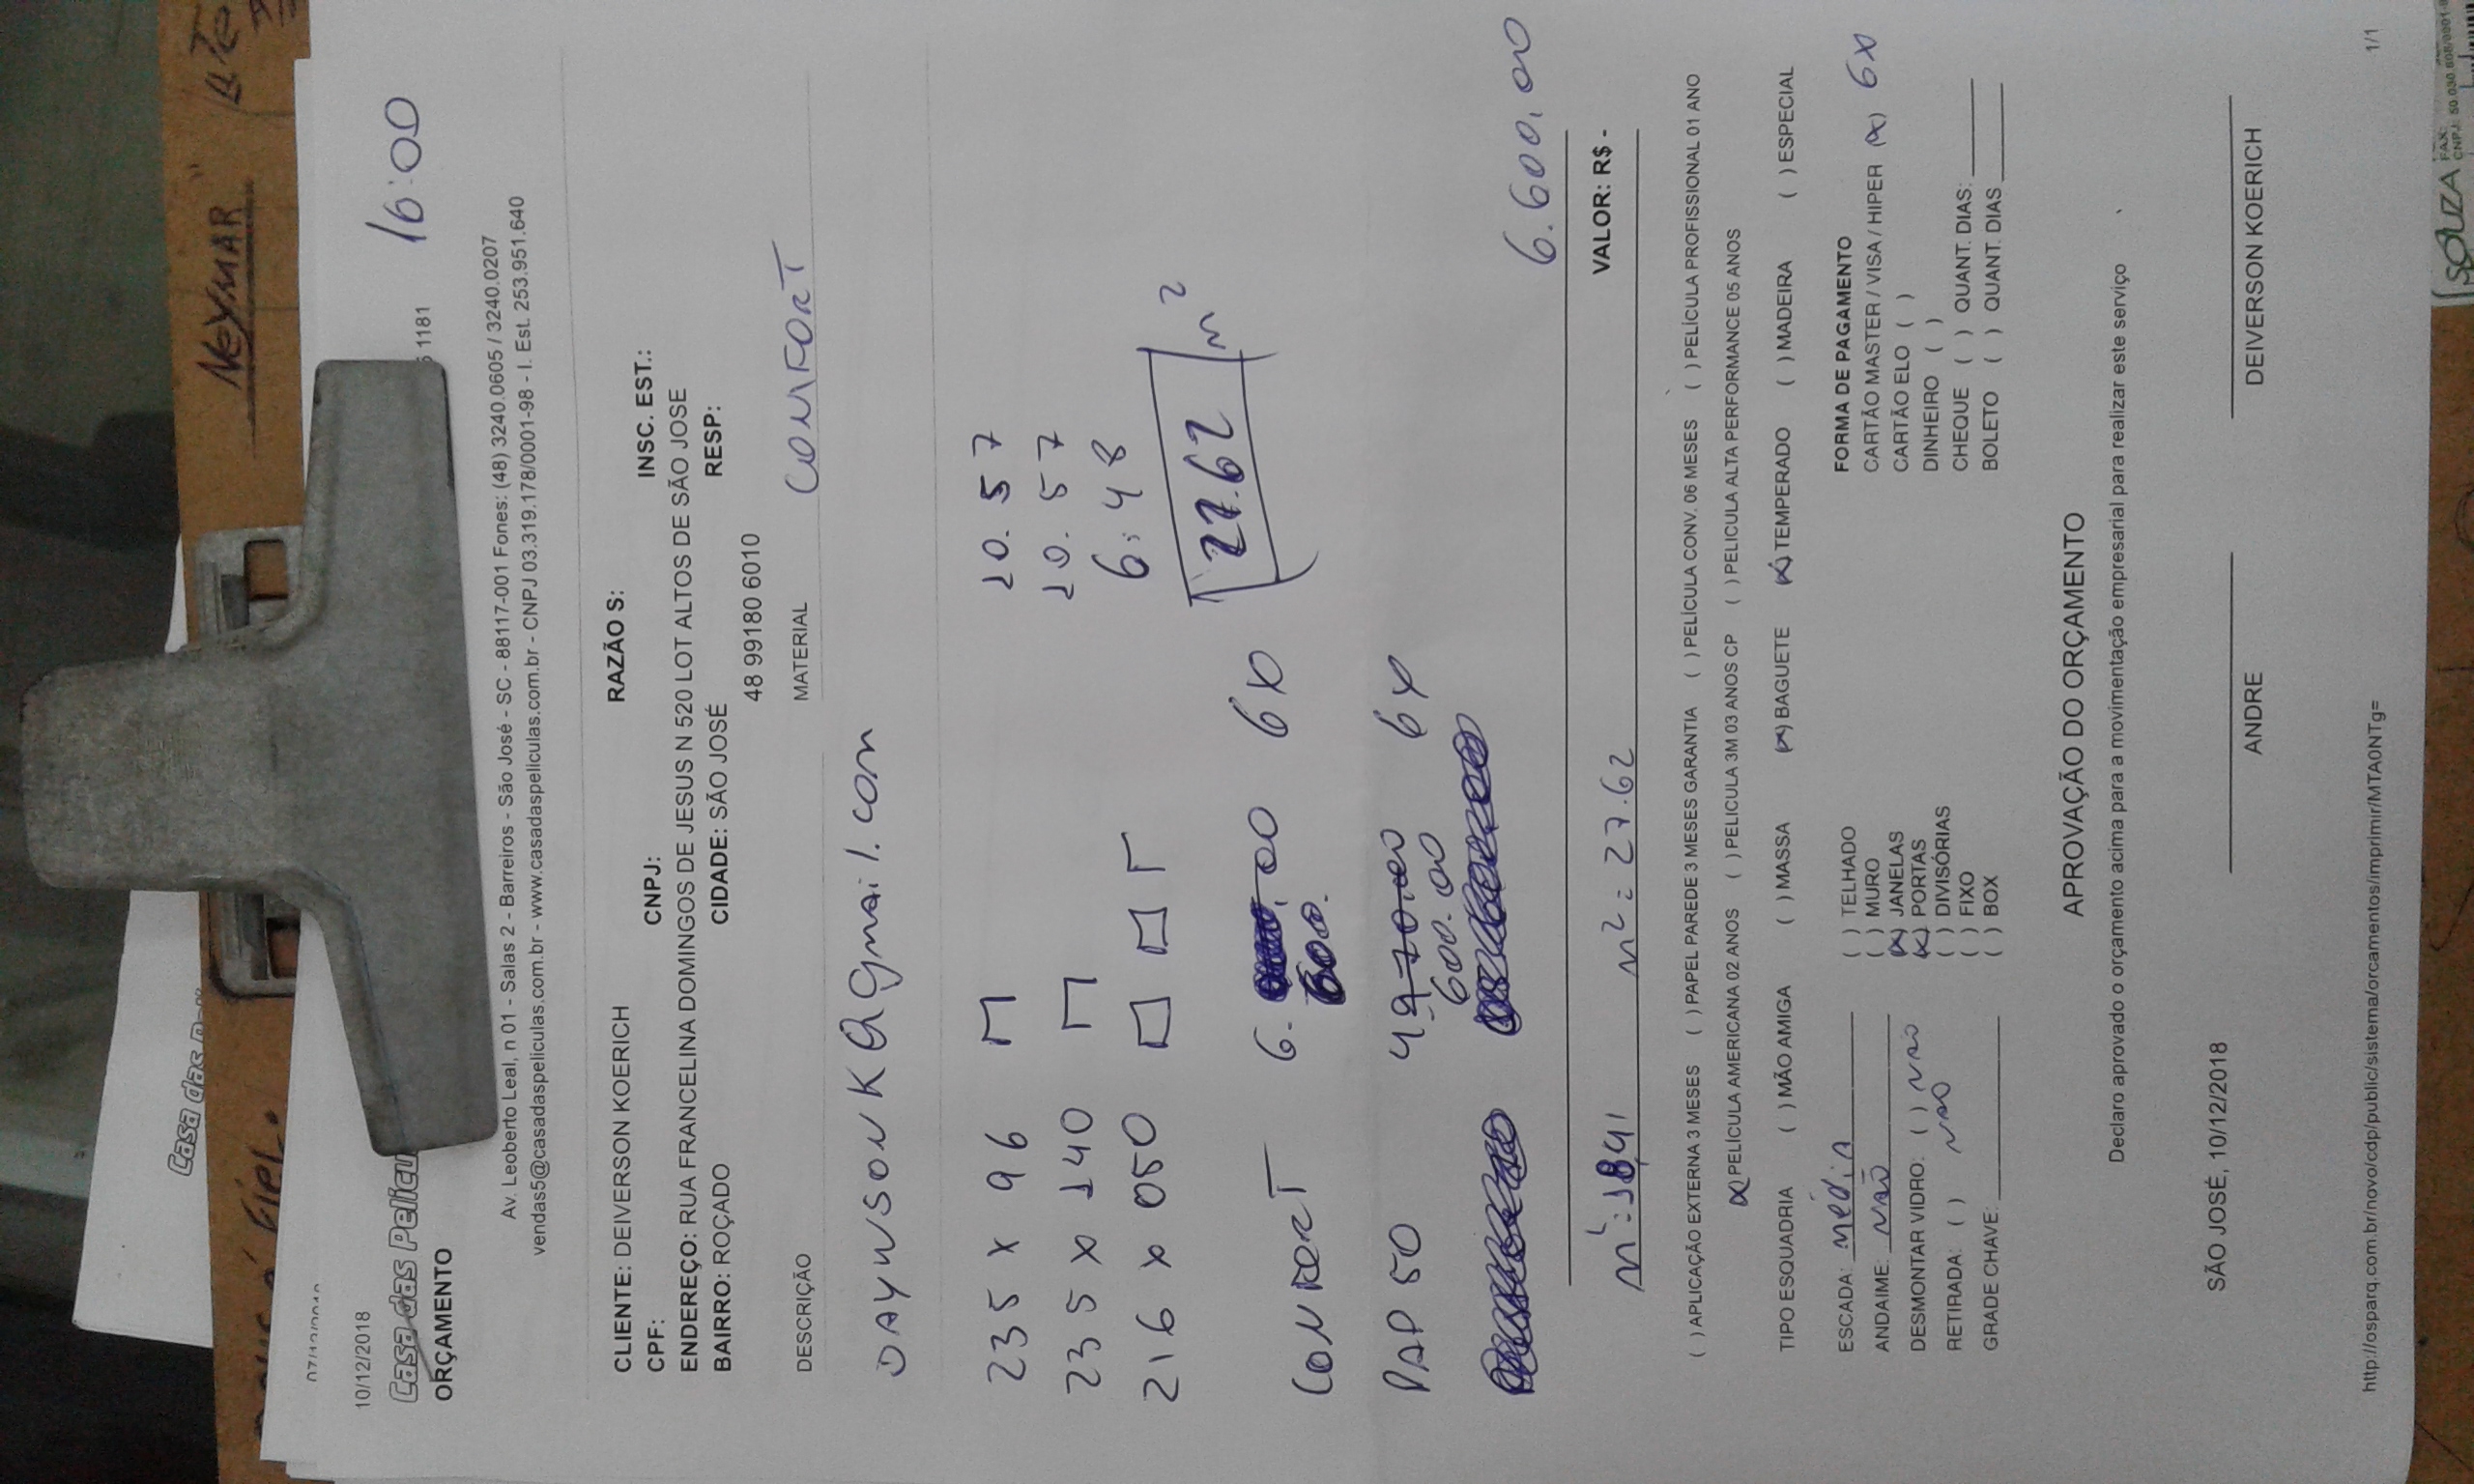 NEYMAR
Casa das
07/12/2018
10/12/2018
Casa das Pelicu
16:00
ORÇAMENTO
1181
Av. Leoberto Leal, n 01 - Salas 2 - Barreiros - São José - SC - 88117-001 Fones: (48) 3240.0605 / 3240.0207
vendas5@casadaspeliculas.com.br - www.casadaspeliculas.com.br - CNPJ 03.319.178/0001-98 - I. Est. 253.951.640
CLIENTE: DEIVERSON KOERICH RAZÃO S:
CPF: CNPJ: INSC. EST.:
ENDEREÇO: RUA FRANCELINA DOMINGOS DE JESUS N 520 LOT ALTOS DE SÃO JOSE
BAIRRO: ROÇADO CIDADE: SÃO JOSÉ RESP:
48 99180 6010
DESCRIÇÃO MATERIAL CONFORT
DAYWSONK@gmail.com
235 x 96 10.57
235 x 140 10.57
216 x 050 6.48
27.62 m²
CONFORT 6.600.00 6X
PAP 50 600.00 6X
6.600,00
VALOR: R$ -
m²: 18,91 m²: 27.62
( ) APLICAÇÃO EXTERNA 3 MESES ( ) PAPEL PAREDE 3 MESES GARANTIA ( ) PELÍCULA CONV. 06 MESES ( ) PELÍCULA PROFISSIONAL 01 ANO
(X) PELÍCULA AMERICANA 02 ANOS ( ) PELICULA 3M 03 ANOS CP ( ) PELICULA ALTA PERFORMANCE 05 ANOS
TIPO ESQUADRIA ( ) MÃO AMIGA ( ) MASSA (X) BAGUETE (X) TEMPERADO ( ) MADEIRA ( ) ESPECIAL
ESCADA: média
ANDAIME: NÃO
DESMONTAR VIDRO: ( ) NÃO
RETIRADA: ( ) NÃO
GRADE CHAVE:
( ) TELHADO
( ) MURO
(X) JANELAS
(X) PORTAS
( ) DIVISÓRIAS
( ) FIXO
( ) BOX
FORMA DE PAGAMENTO
CARTÃO MASTER / VISA / HIPER (X) 6X
CARTÃO ELO ( )
DINHEIRO ( )
CHEQUE ( ) QUANT. DIAS:
BOLETO ( ) QUANT. DIAS
APROVAÇÃO DO ORÇAMENTO
Declaro aprovado o orçamento acima para a movimentação empresarial para realizar este serviço
SÃO JOSÉ, 10/12/2018
ANDRE
DEIVERSON KOERICH
http://osparq.com.br/novo/cdp/public/sistema/orcamentos/imprimir/MTA0NTg= 1/1
SOUZA
FAX: